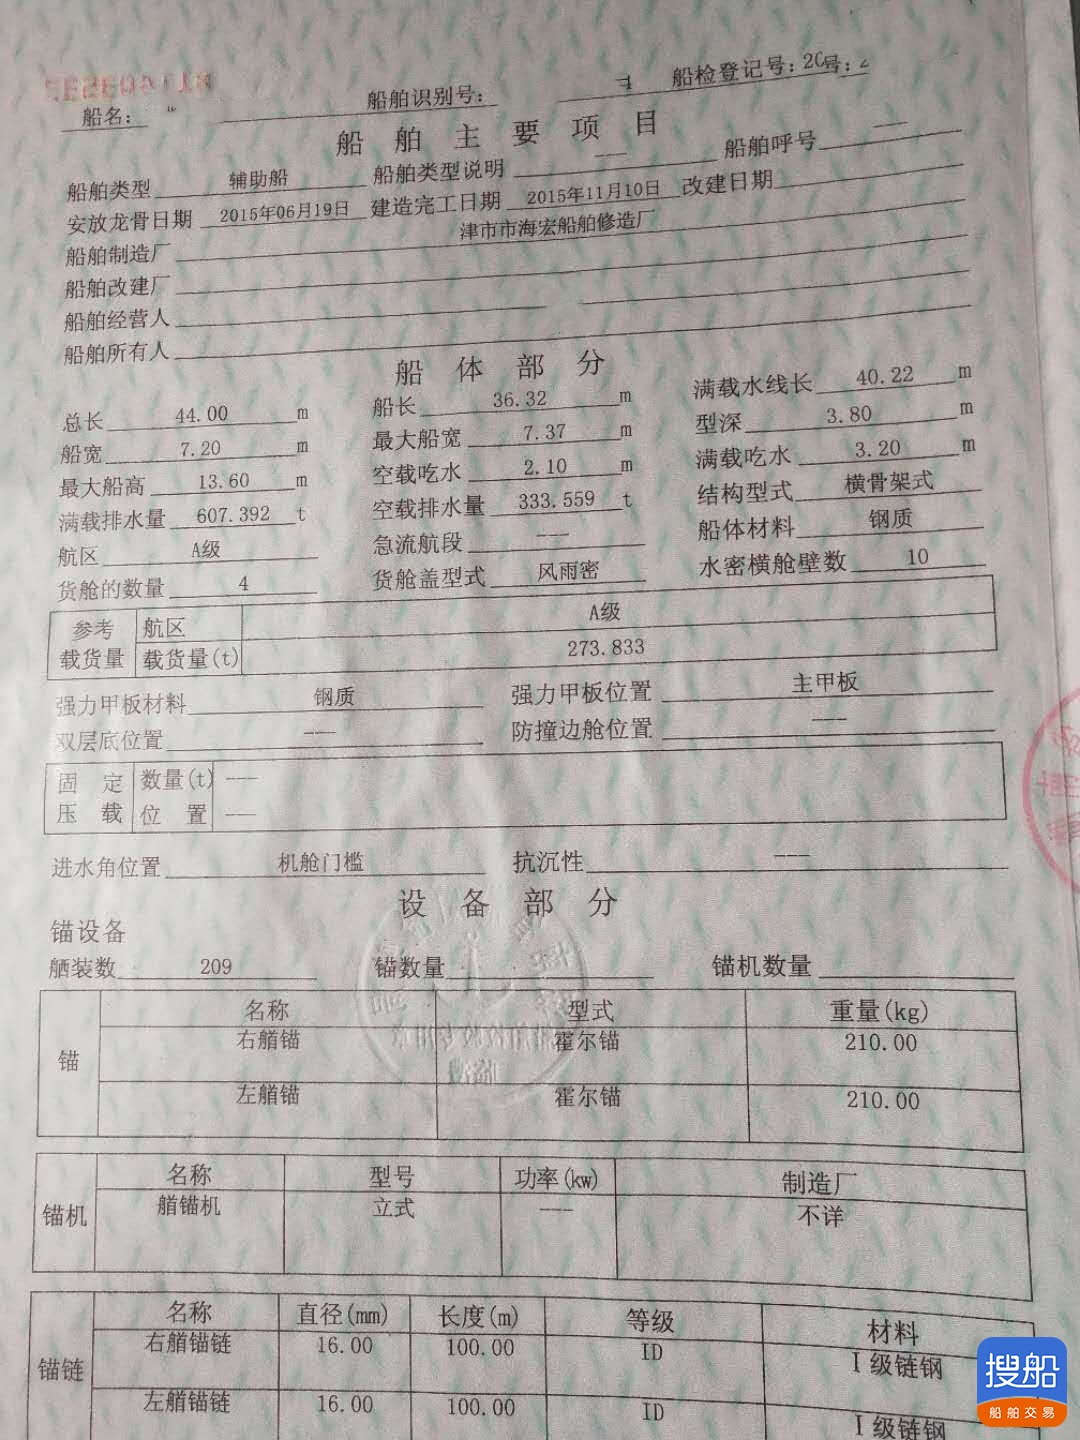 船名： 船舶识别号： 船检登记号：20号：2
船舶主要项目
船舶类型 辅助船 船舶类型说明 --- 船舶呼号 ---
安放龙骨日期 2015年06月19日 建造完工日期 2015年11月10日 改建日期
船舶制造厂 津市市海宏船舶修造厂
船舶改建厂
船舶经营人
船舶所有人
船体部分
总长 44.00 m 船长 36.32 m 满载水线长 40.22 m
船宽 7.20 m 最大船宽 7.37 m 型深 3.80 m
最大船高 13.60 m 空载吃水 2.10 m 满载吃水 3.20 m
满载排水量 607.392 t 空载排水量 333.559 t 结构型式 横骨架式
航区 A级 急流航段 --- 船体材料 钢质
货舱的数量 4 货舱盖型式 风雨密 水密横舱壁数 10
参考 航区 A级
载货量 载货量(t) 273.833
强力甲板材料 钢质 强力甲板位置 主甲板
双层底位置 --- 防撞边舱位置 ---
固定 数量(t) ---
压载 位置 ---
进水角位置 机舱门槛 抗沉性 ---
设备部分
锚设备
舾装数 209 锚数量 锚机数量
锚 名称 型式 重量(kg)
右艏锚 霍尔锚 210.00
左艏锚 霍尔锚 210.00
锚机 名称 型号 功率(kw) 制造厂
艏锚机 立式 --- 不详
锚链 名称 直径(mm) 长度(m) 等级 材料
右艏锚链 16.00 100.00 ID I级链钢
左艏锚链 16.00 100.00 ID I级链钢
搜船
船舶交易